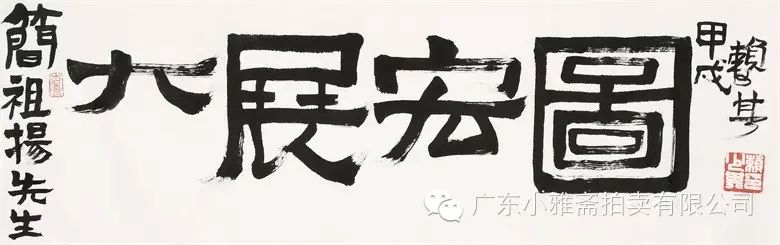 簡祖揚先生
大展宏圖
甲戌
賴少其
广东小雅斋拍卖有限公司